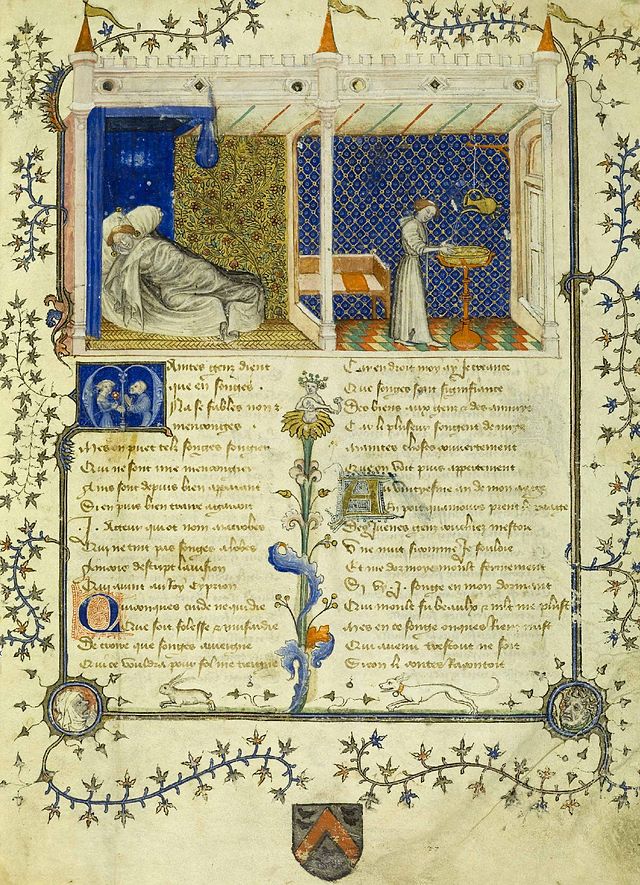 Maintes genz dient
que en songes
Na se fables non z
mensonges
Mes en puet telz songes songier
Qui ne sont mie mensongier
Ains sont depuis bien apparant
Si en puis bien traire agarant
.J. Acteur qui ot non macrobes
Qui ne tint pas songes alobes
Aincois descript lavision
Qui avint au Roy Cyprion
Quiconques cuide ne qui die
Que soit folesse z musardie
De croire que songes aveigne
Qui ce vouldra pour fol me teigne
Car en droit moy ay Je creance
Que songes soit signifiance
Des biens aux genz z des annuys
Car li pluseur songent de nuiz
Maintes choses couvertement
Que en voit puis appertement
Au vintyesme an de mon aage
En point quamours prent le paage
Des Juenes genz couchiez mestoie
Une nuit si comme Je souloie
Et me dormoye forment
Si vy .J. songe en mon dormant
Qui moult fu beaulx z mlt me plust
Mes en ce songe onques Riens nust
Qui avenu trestout ne soit
Si com li contes Racontoit